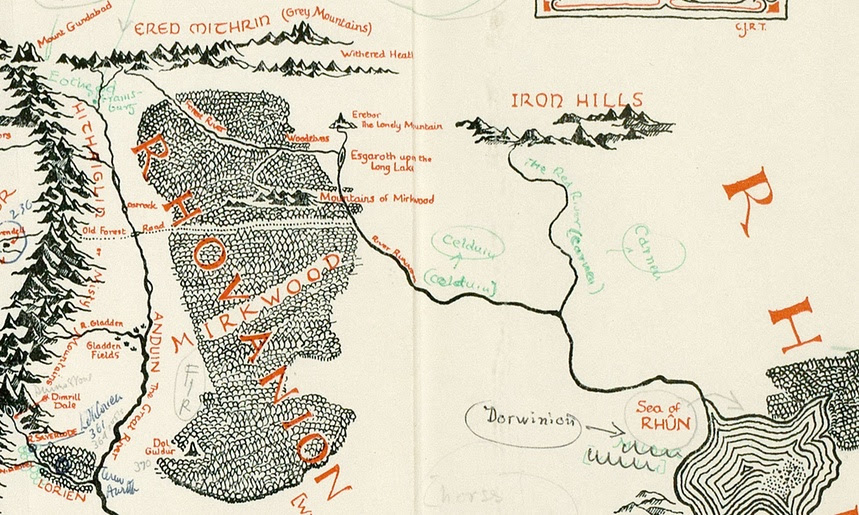 Mount Gundabad
ERED MITHRIN (Grey Mountains)
C.J.R.T.
Withered Heath
Eotheod
Framsburg
IRON HILLS
Forest River
Erebor
The Lonely Mountain
Woodelves
Esgaroth upon the
Long Lake
HITHAEGLIR or Misty Mountains
Mountains of Mirkwood
The Red River (Carnen)
Carnen
236
Old Forest Road
River Running
Celduin
(Celduin)
RHOVANION
MIRKWOOD
R H
ANDUIN The Great River
R. Gladden
Gladden
Fields
FIR
Dimrill
Dale
Lothlorien
361
R. SILVERLODE
Dol
Guldur
370
LORIEN
Dorwinion
Sea of
RHÛN
horss